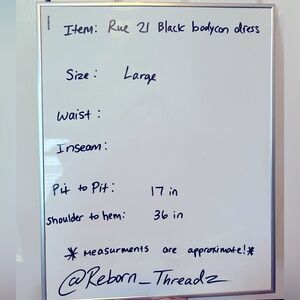 Item: Rue 21 Black bodycon dress
Size: Large
Waist:
Inseam:
Pit to Pit: 17 in
shoulder to hem: 36 in
* Measurments are approximate! *
@Reborn_Threadz